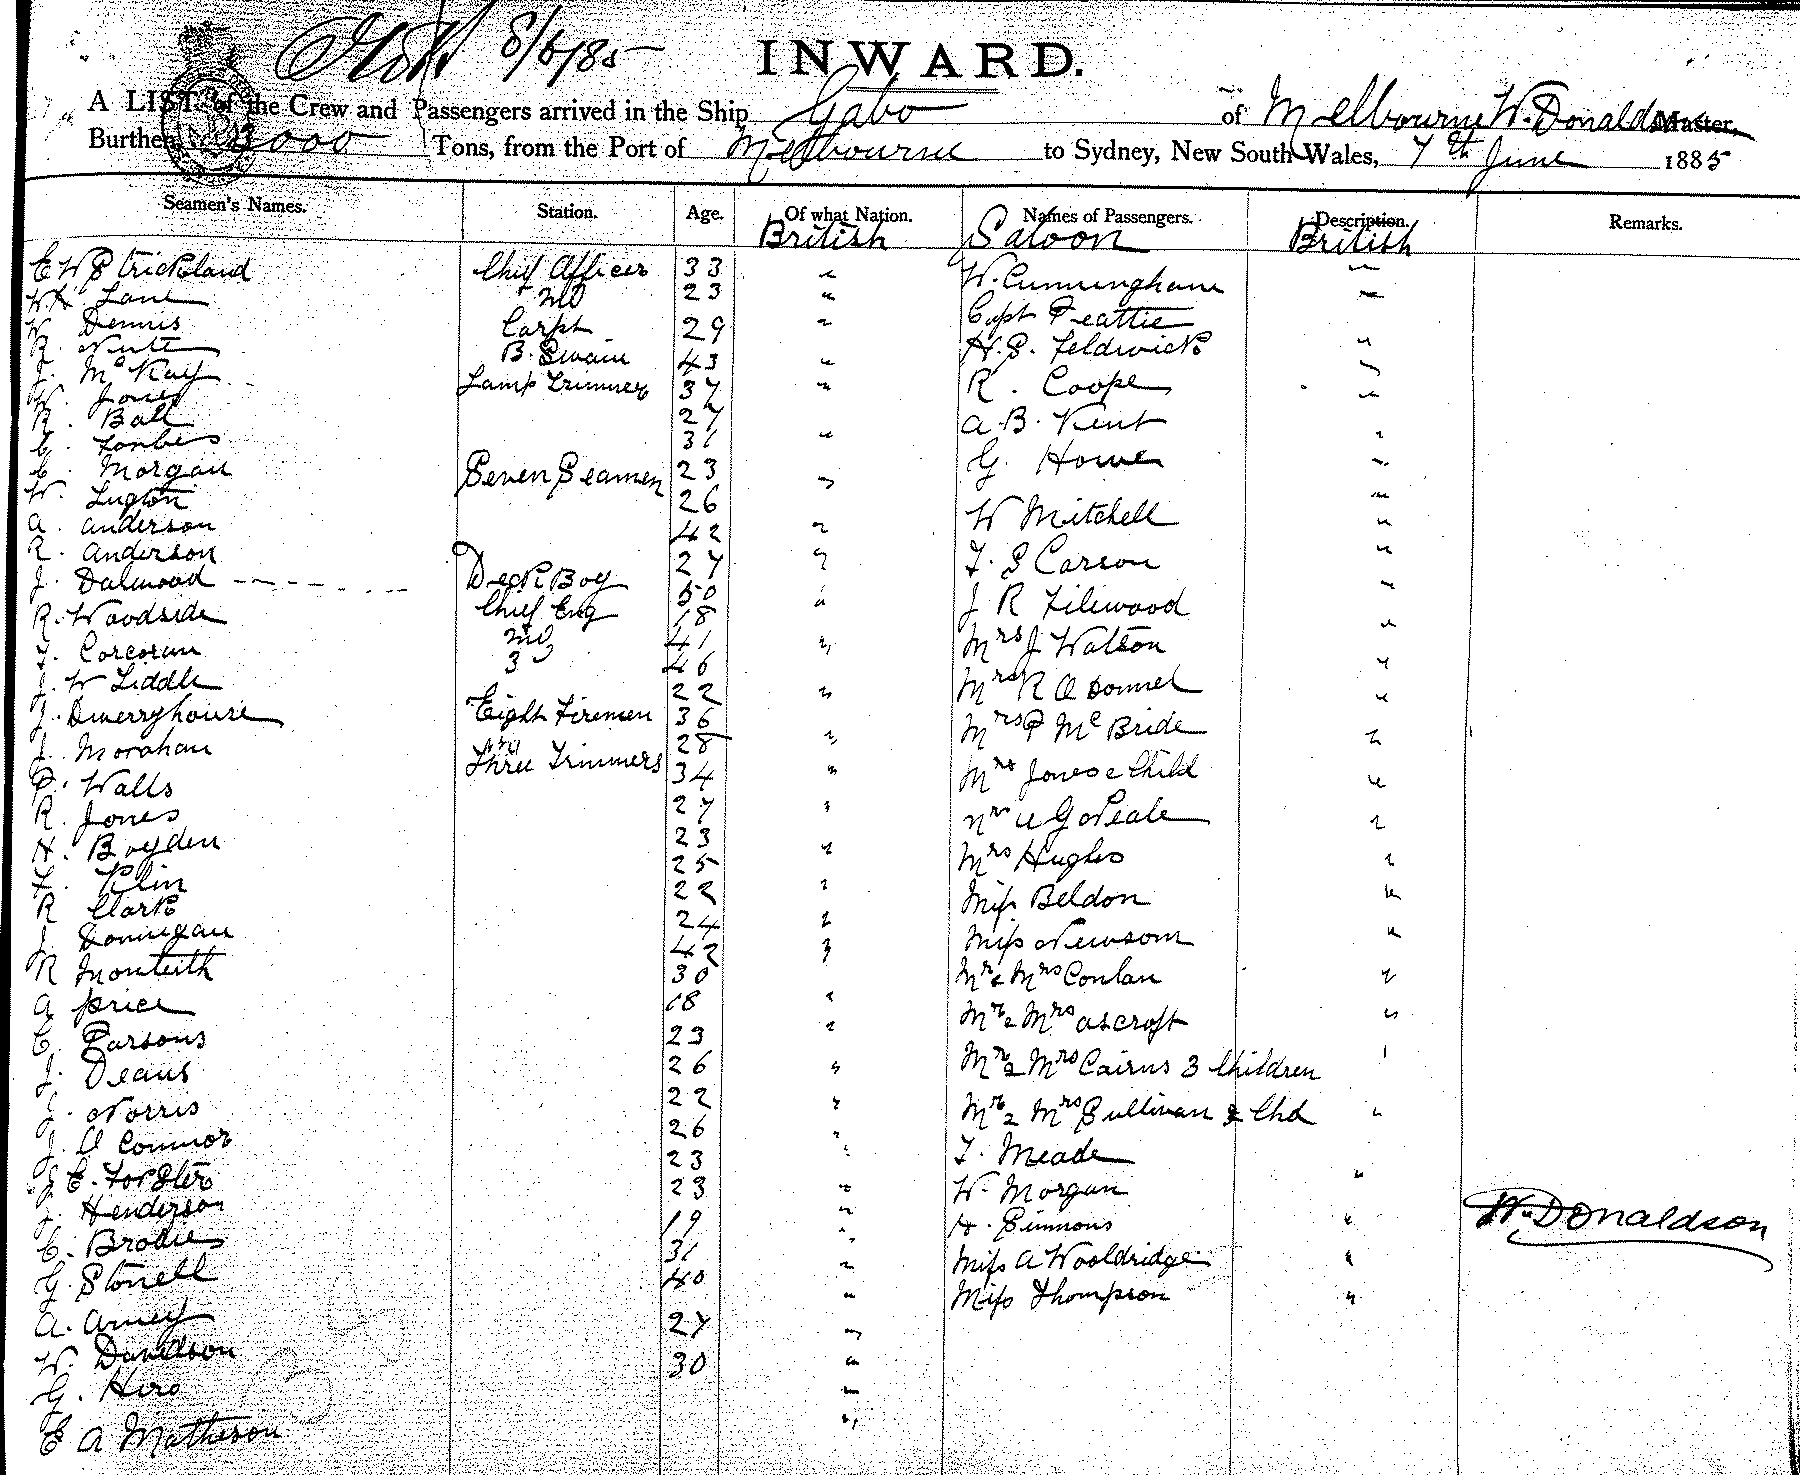 8/6/85
INWARD.
A LIST of the Crew and Passengers arrived in the Ship Gabo of Melbourne W. Donaldson Master,
Burthen 3000 Tons, from the Port of Melbourne to Sydney, New South Wales, 7th June 1885
Seamen's Names. Station. Age. Of what Nation. Names of Passengers. Description. Remarks.
British Saloon British
E W Strickland Chief Officer 33 " W. Cunningham "
W H Lane 2nd 23 " Capt Beattie "
W. Dennis Carpt 29 " H. S. Feldwick "
R. Nute B. Swain 43 " R. Coope "
J. McKay Lamp Trimmer 37 " A. B. Kent "
W. Jones 27 " G. Howe "
R. Ball 31 " W Mitchell "
C. Forbes Seven Seamen 23 " T. S Carson "
C. Morgan 26 " J R Filewood "
W. Lugton 42 " Mrs J Watson "
A. Anderson 27 " Mrs R O Donnel "
R. Anderson 50 " Mrs P McBride "
J. Dalwood Deck Boy 18 " Mrs Jones & Child "
R. Woodside Chief Eng 41 " "
J. Corcoran 2nd 46 " Mrs Hughes "
J. W Liddle 3 22 " Miss Beldon "
J. Dwerryhouse Eight Firemen 36 " Miss Newsom "
J. Morahan 28 " Mr & Mrs Conlan "
P. Walls Three Trimmers 34 " Mr & Mrs Ascroft "
R. Jones 27 " Mr & Mrs Cairns 3 Children "
H. Boyden 23 " Mr & Mrs Sullivan & Chd "
F. Klin 25 " T. Meade "
R Clark 22 " W. Morgan "
J. Donnigan 24 " H. Simmons "
R Monteith 42 " Miss A Wooldridge "
A Price 30 " Miss Thompson "
C. Parsons 18 "
J. Deans 23 "
J. Norris 26 "
J. O Connor 22 "
J. C. Forster 26 "
J. Henderson 23 "
C. Brodie 23 "
G. Stonell 19 "
A. Amey 31 "
W. Davidson 40 "
G. Hird 27 "
E A Matheson 30 "
W. Donaldson